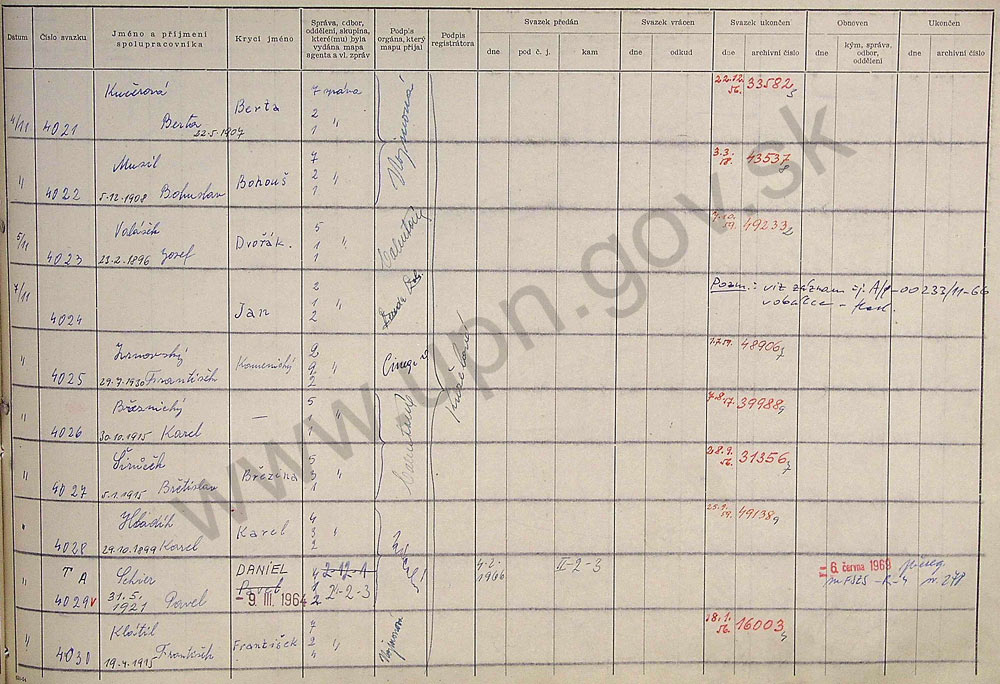 Datum
Číslo svazku
Jméno a příjmení
spolupracovníka
Krycí jméno
Správa, odbor,
oddělení, skupina,
které(mu) byla
vydána mapa
agenta a vl. zpráv
Podpis
orgána, který
mapu přijal
Podpis
registrátora
Svazek předán
dne
pod č. j.
kam
Svazek vrácen
dne
odkud
Svazek ukončen
dne
archivní číslo
Obnoven
dne
kým, správa,
odbor,
oddělení
Ukončen
dne
archivní číslo
4/11 4021 Kučerová
Berta 22.5.1907
Berta
7 správa
2 "
1
22.12.
56. 33582
" 4022 Musil
5.12.1908 Bohuslav
Bohouš
7
2 "
1
3.3.
58. 43537
5/11 4023 Valášek
23.2.1896 Josef
Dvořák.
5
1 "
1
7.10.
59. 49233
7/11 4024 Jan
2
1 "
2
Pozn.: viz záznam čj. A/1-00233/11-66
" 4025
29.7.1930 František
Kamenický
2
9 "
2
1.7.59. 48906
" 4026 Březnický
30.10.1915 Karel
—
5
1 "
1
7.8.57. 39988
" 4027
5.1.1915 Břetislav
Březina
5
3 "
1
28.9.
56. 31356
4028 Hládík
29.10.1899 Karel
Karel
4
3 "
2
25.9.
59. 49138
" T A 4029 v Schier
31.5.
1921 Pavel
DANIEL
Pavel
- 9. III. 1964
4 2-12-1
1 2-2-3
2
4.2.
1966
II-2-3
- 6. června 1969
" 4030 Klátil
19.4.1915 František
František
7
2 "
4
Vojmonová
18.1.
56. 16003
www.upn.gov.sk